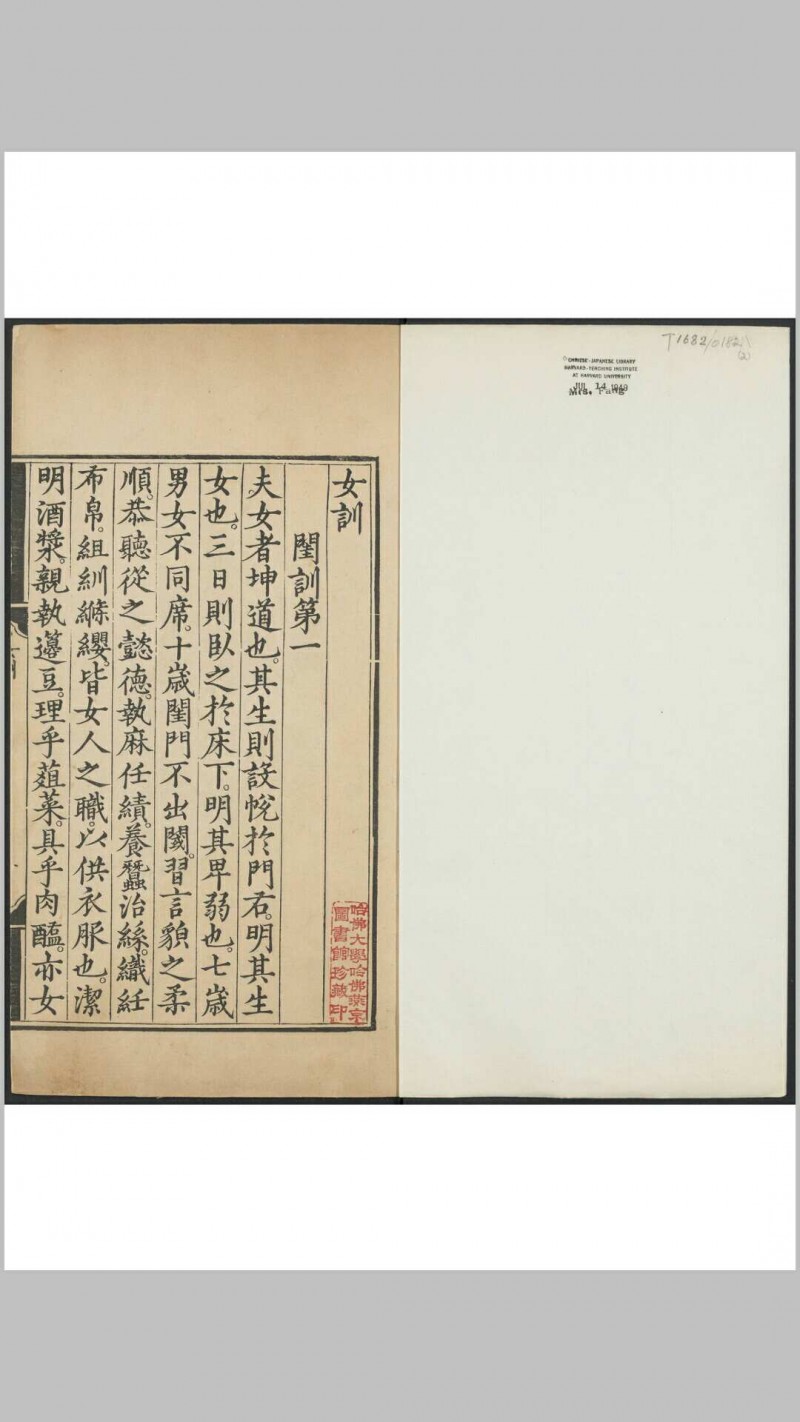 T1682/0182
(2)
CHINESE-JAPANESE LIBRARY
HARVARD-YENCHING INSTITUTE
AT HARVARD UNIVERSITY
JUL 14 1949
女訓
閨訓第一
夫女者坤道也。其生則設帨於門右。明其生
女也。三日則臥之於床下。明其卑弱也。七歲
男女不同席。十歲閨門不出閾。習言貌之柔
順。恭聽從之懿德。執麻任績。養蠶治絲。織紝
布帛。組紃絛纓。皆女人之職。以供衣服也。潔
明酒漿。親執籩豆。理乎葅菜。具乎肉醢。亦女
哈佛大學哈佛燕京
圖書館珍藏印